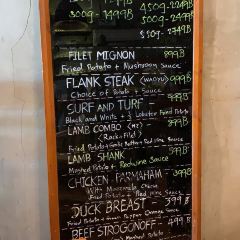 300g-1499B 450g-2249B
550g-2749B
FILET MIGNON 999B
Fried Potato + Mushroom Sauce
FLANK STEAK (WAGYU) 999B
Choice of Potato + Sauce
SURF AND TURF -
Black and White + ½ Lobster Fried Potato
LAMB COMBO
(Rack + Filet)
Fried Potato + Garlic Butter + Red Wine Sauce
LAMB SHANK
Mashed Potato + Red Wine Sauce
CHICKEN PARMAHAM
With Mozzarella Cheese
Fried Potato + Red Wine Sauce
DUCK BREAST - 399B
Fried Potato + Pepper Orange Sauce
BEEF STROGONOFF -
Mashed